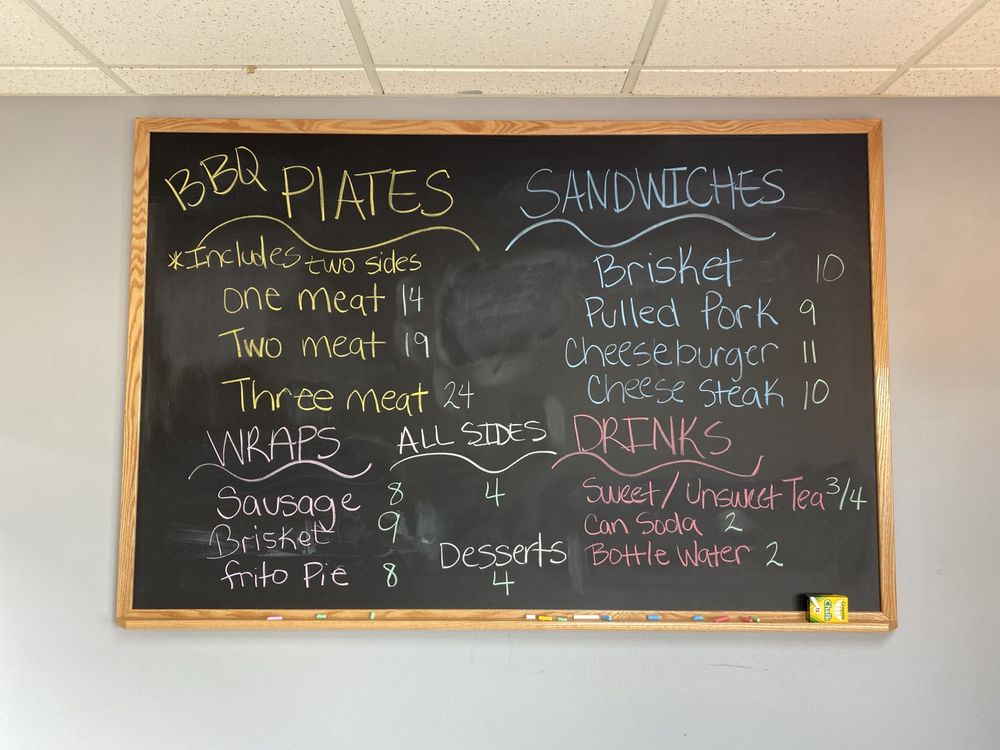 BBQ PLATES
*Includes two sides
one meat 14
Two meat 19
Three meat 24
SANDWICHES
Brisket 10
Pulled Pork 9
Cheeseburger 11
Cheese steak 10
WRAPS
Sausage 8
Brisket 9
frito Pie 8
ALL SIDES
4
Desserts
4
DRINKS
Sweet/Unsweet Tea 3/4
Can Soda 2
Bottle Water 2